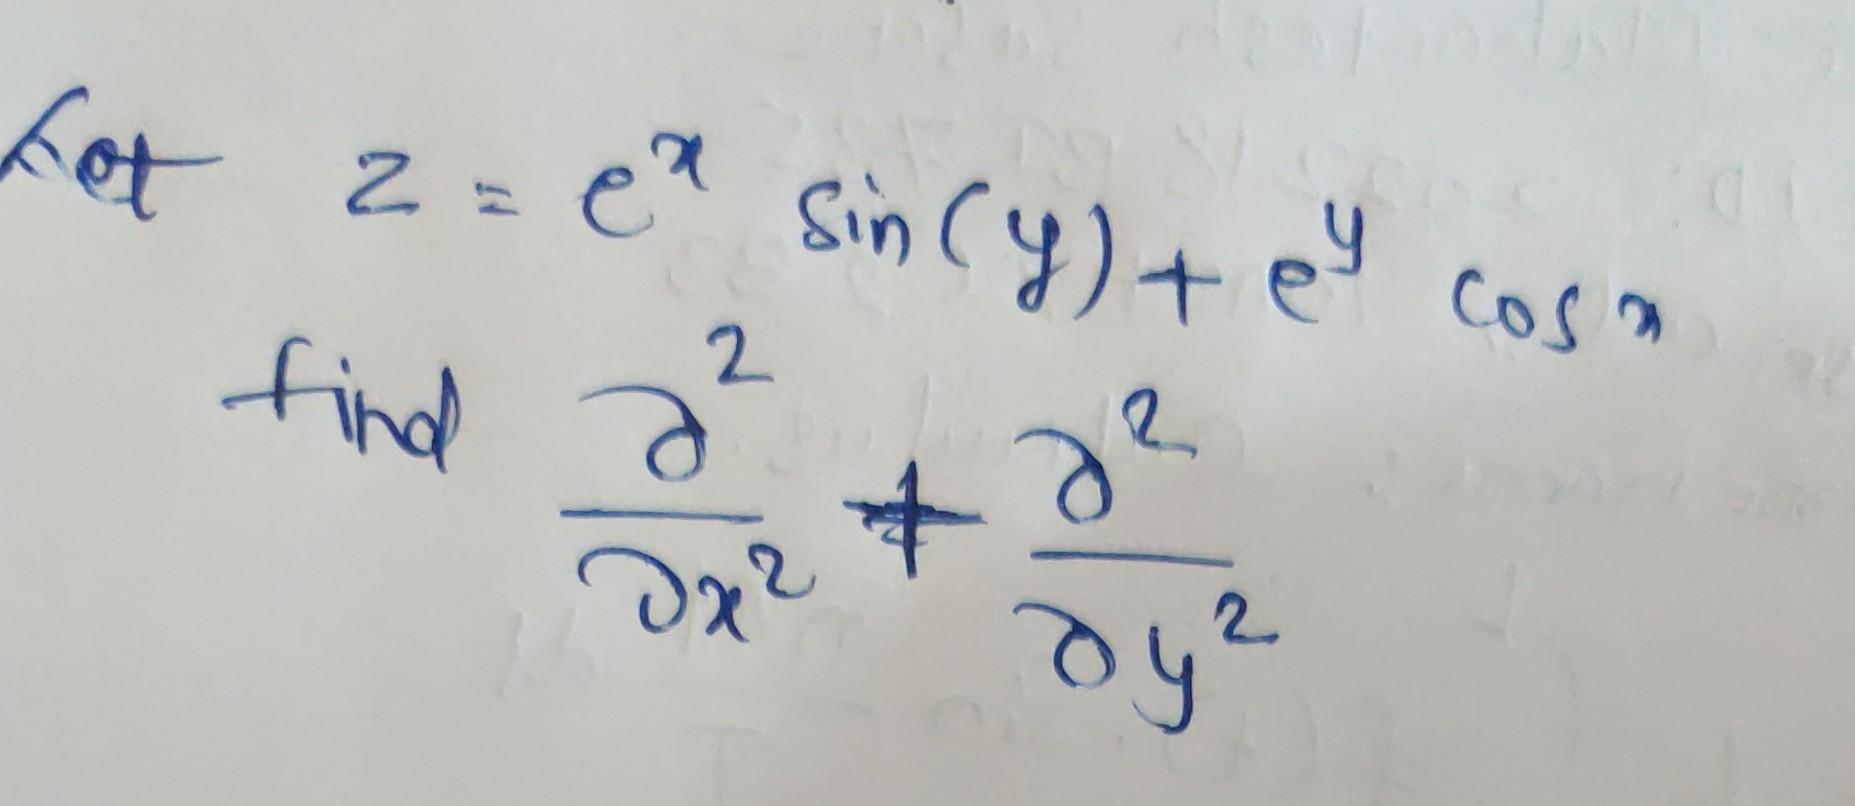 Let z = eˣ sin(y) + eʸ cos x
find ∂²/∂x² + ∂²/∂y²